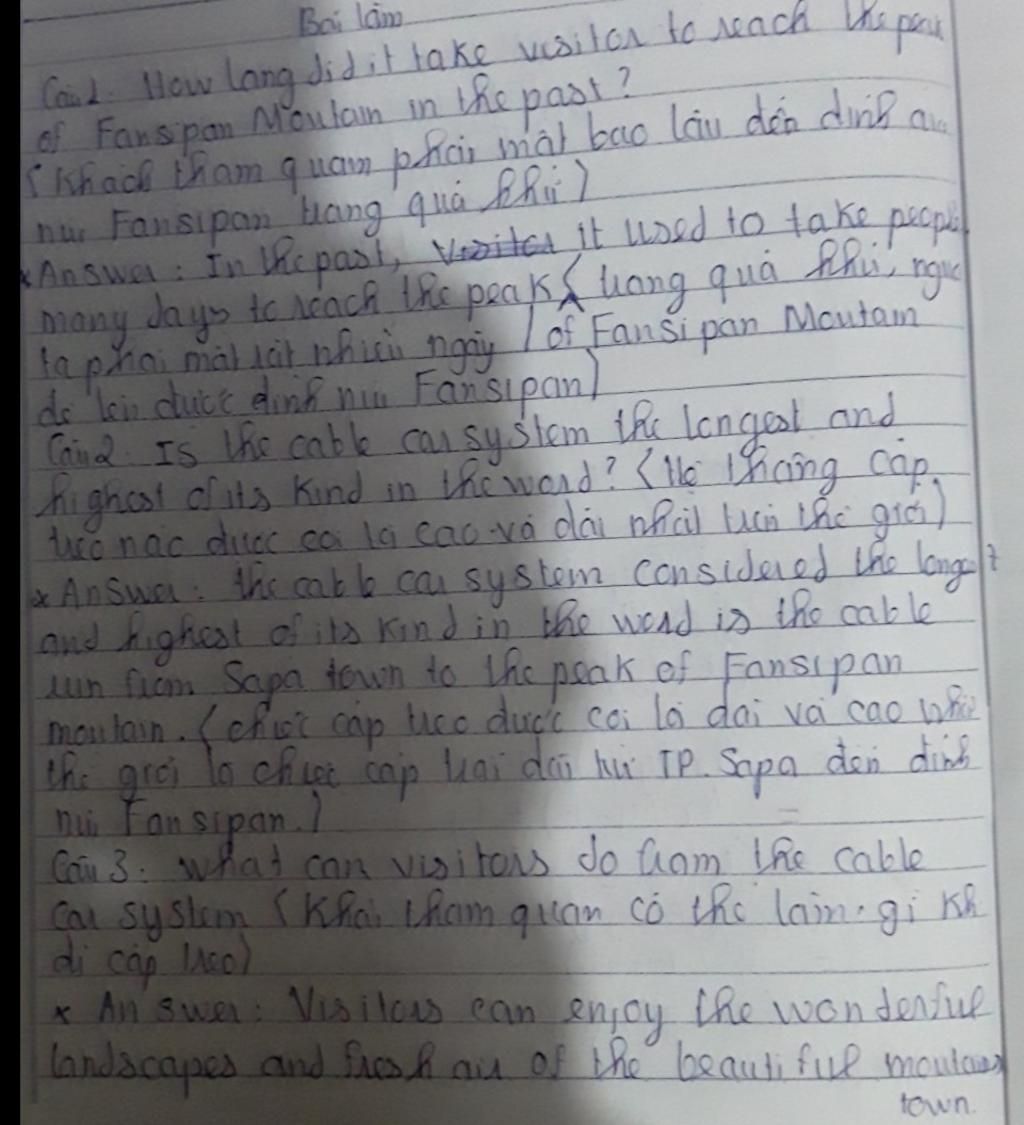 Bài làm
Câu 1: How long did it take visitor to reach the peak
of Fansipan Moutain in the past?
(Khách tham quan phải mất bao lâu đến đỉnh
núi Fansipan trong quá khứ)
* Answer: In the past, it used to take people
many days to reach the peak (trong quá khứ, người
ta phải mất rất nhiều ngày / of Fansipan Moutain
để lên được đỉnh núi Fansipan)
Câu 2. Is the cable car system the longest and
highest of its kind in the word? (Hệ thống cáp
treo nào được coi là cao và dài nhất trên thế giới)
* Answer: the cable car system considered the longest
and highest of its kind in the word is the cable
run from Sapa town to the peak of Fansipan
moutain. (chiếc cáp treo được coi là dài và cao nhất
thế giới là chiếc cáp trải dài từ TP. Sapa đến đỉnh
núi Fansipan.)
Câu 3: what can visitors do from the cable
car system (Khách tham quan có thể làm gì kh
đi cáp treo)
* Answer: Visitors can enjoy the wonderful
landscapes and fresh air of the beautiful moutains
town.